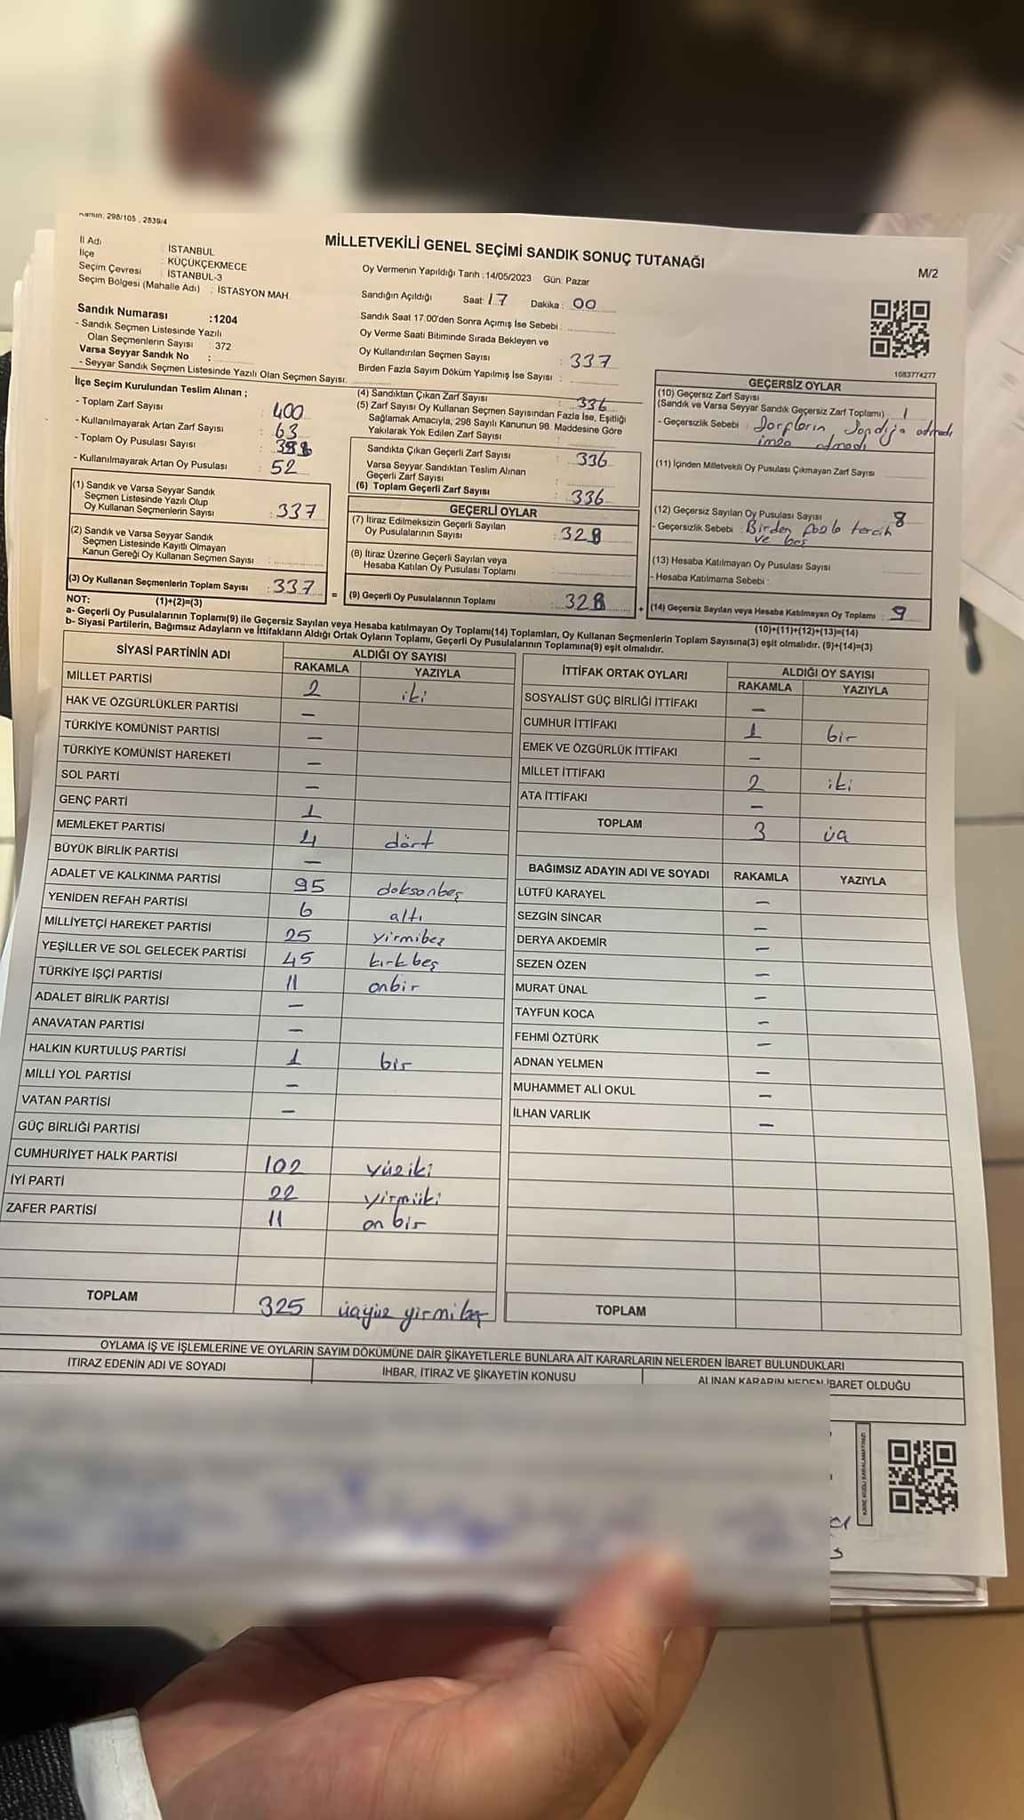 Kanun: 298/105 , 2839/4
MİLLETVEKİLİ GENEL SEÇİMİ SANDIK SONUÇ TUTANAĞI
M/2
İl Adı : İSTANBUL
İlçe : KÜÇÜKÇEKMECE
Seçim Çevresi : İSTANBUL-3
Seçim Bölgesi (Mahalle Adı) : İSTASYON MAH.
Sandık Numarası :1204
- Sandık Seçmen Listesinde Yazılı
Olan Seçmenlerin Sayısı : 372
Varsa Seyyar Sandık No :
- Seyyar Sandık Seçmen Listesinde Yazılı Olan Seçmen Sayısı:
Oy Vermenin Yapıldığı Tarih :14/05/2023 Gün: Pazar
Sandığın Açıldığı Saat: 17 Dakika: 00
Sandık Saat 17.00'den Sonra Açımış İse Sebebi :
Oy Verme Saati Bitiminde Sırada Bekleyen ve
Oy Kullandırılan Seçmen Sayısı : 337
Birden Fazla Sayım Döküm Yapılmış İse Sayısı :
1083774277
İlçe Seçim Kurulundan Teslim Alınan ;
- Toplam Zarf Sayısı : 400
- Kullanılmayarak Artan Zarf Sayısı : 63
- Toplam Oy Pusulası Sayısı :
- Kullanılmayarak Artan Oy Pusulası : 52
(1) Sandık ve Varsa Seyyar Sandık
Seçmen Listesinde Yazılı Olup
Oy Kullanan Seçmenlerin Sayısı : 337
(2) Sandık ve Varsa Seyyar Sandık
Seçmen Listesinde Kayıtlı Olmayan
Kanun Gereği Oy Kullanan Seçmen Sayısı :
(3) Oy Kullanan Seçmenlerin Toplam Sayısı : 337
(1)+(2)=(3)
(4) Sandıktan Çıkan Zarf Sayısı : 336
(5) Zarf Sayısı Oy Kullanan Seçmen Sayısından Fazla İse, Eşitliği
Sağlamak Amacıyla, 298 Sayılı Kanunun 98. Maddesine Göre
Yakılarak Yok Edilen Zarf Sayısı :
Sandıkta Çıkan Geçerli Zarf Sayısı : 336
Varsa Seyyar Sandıktan Teslim Alınan
Geçerli Zarf Sayısı :
(6) Toplam Geçerli Zarf Sayısı : 336
GEÇERLİ OYLAR
(7) İtiraz Edilmeksizin Geçerli Sayılan
Oy Pusulalarının Sayısı : 328
(8) İtiraz Üzerine Geçerli Sayılan veya
Hesaba Katılan Oy Pusulası Toplamı :
= (9) Geçerli Oy Pusulalarının Toplamı : 328
GEÇERSİZ OYLAR
(10) Geçersiz Zarf Sayısı
(Sandık ve Varsa Seyyar Sandık Geçersiz Zarf Toplamı) : 1
- Geçersizlik Sebebi : atmadı
imza atmadı
(11) İçinden Milletvekili Oy Pusulası Çıkmayan Zarf Sayısı :
(12) Geçersiz Sayılan Oy Pusulası Sayısı : 8
- Geçersizlik Sebebi : Birden fazla tercih
ve boş
(13) Hesaba Katılmayan Oy Pusulası Sayısı
- Hesaba Katılmama Sebebi :
+ (14) Geçersiz Sayılan veya Hesaba Katılmayan Oy Toplamı : 9
(10)+(11)+(12)+(13)=(14)
NOT:
a- Geçerli Oy Pusulalarının Toplamı(9) ile Geçersiz Sayılan veya Hesaba Katılmayan Oy Toplamı(14) Toplamları, Oy Kullanan Seçmenlerin Toplam Sayısına(3) eşit olmalıdır. (9)+(14)=(3)
b- Siyasi Partilerin, Bağımsız Adayların ve İttifakların Aldığı Ortak Oyların Toplamı, Geçerli Oy Pusulalarının Toplamına(9) eşit olmalıdır.
SİYASİ PARTİNİN ADI ALDIĞI OY SAYISI
RAKAMLA YAZIYLA
MİLLET PARTİSİ 2 iki
HAK VE ÖZGÜRLÜKLER PARTİSİ –
TÜRKİYE KOMÜNİST PARTİSİ –
TÜRKİYE KOMÜNİST HAREKETİ –
SOL PARTİ –
GENÇ PARTİ 1
MEMLEKET PARTİSİ 4 dört
BÜYÜK BİRLİK PARTİSİ –
ADALET VE KALKINMA PARTİSİ 95 doksanbeş
YENİDEN REFAH PARTİSİ 6 altı
MİLLİYETÇİ HAREKET PARTİSİ 25 yirmibeş
YEŞİLLER VE SOL GELECEK PARTİSİ 45 kırkbeş
TÜRKİYE İŞÇİ PARTİSİ 11 onbir
ADALET BİRLİK PARTİSİ –
ANAVATAN PARTİSİ –
HALKIN KURTULUŞ PARTİSİ 1 bir
MİLLİ YOL PARTİSİ –
VATAN PARTİSİ –
GÜÇ BİRLİĞİ PARTİSİ
CUMHURİYET HALK PARTİSİ 102 yüziki
İYİ PARTİ 22 yirmiiki
ZAFER PARTİSİ 11 on bir
TOPLAM 325 üçyüz yirmibeş
İTTİFAK ORTAK OYLARI ALDIĞI OY SAYISI
RAKAMLA YAZIYLA
SOSYALİST GÜÇ BİRLİĞİ İTTİFAKI –
CUMHUR İTTİFAKI 1 bir
EMEK VE ÖZGÜRLÜK İTTİFAKI –
MİLLET İTTİFAKI 2 iki
ATA İTTİFAKI –
TOPLAM 3 üç
BAĞIMSIZ ADAYIN ADI VE SOYADI RAKAMLA YAZIYLA
LÜTFÜ KARAYEL –
SEZGİN SİNCAR –
DERYA AKDEMİR –
SEZEN ÖZEN –
MURAT ÜNAL –
TAYFUN KOCA –
FEHMİ ÖZTÜRK –
ADNAN YELMEN –
MUHAMMET ALİ OKUL –
İLHAN VARLIK –
TOPLAM
OYLAMA İŞ VE İŞLEMLERİNE VE OYLARIN SAYIM DÖKÜMÜNE DAİR ŞİKAYETLERLE BUNLARA AİT KARARLARIN NELERDEN İBARET BULUNDUKLARI
İTİRAZ EDENİN ADI VE SOYADI İHBAR, İTİRAZ VE ŞİKAYETİN KONUSU ALINAN KARARIN NEDEN İBARET OLDUĞU